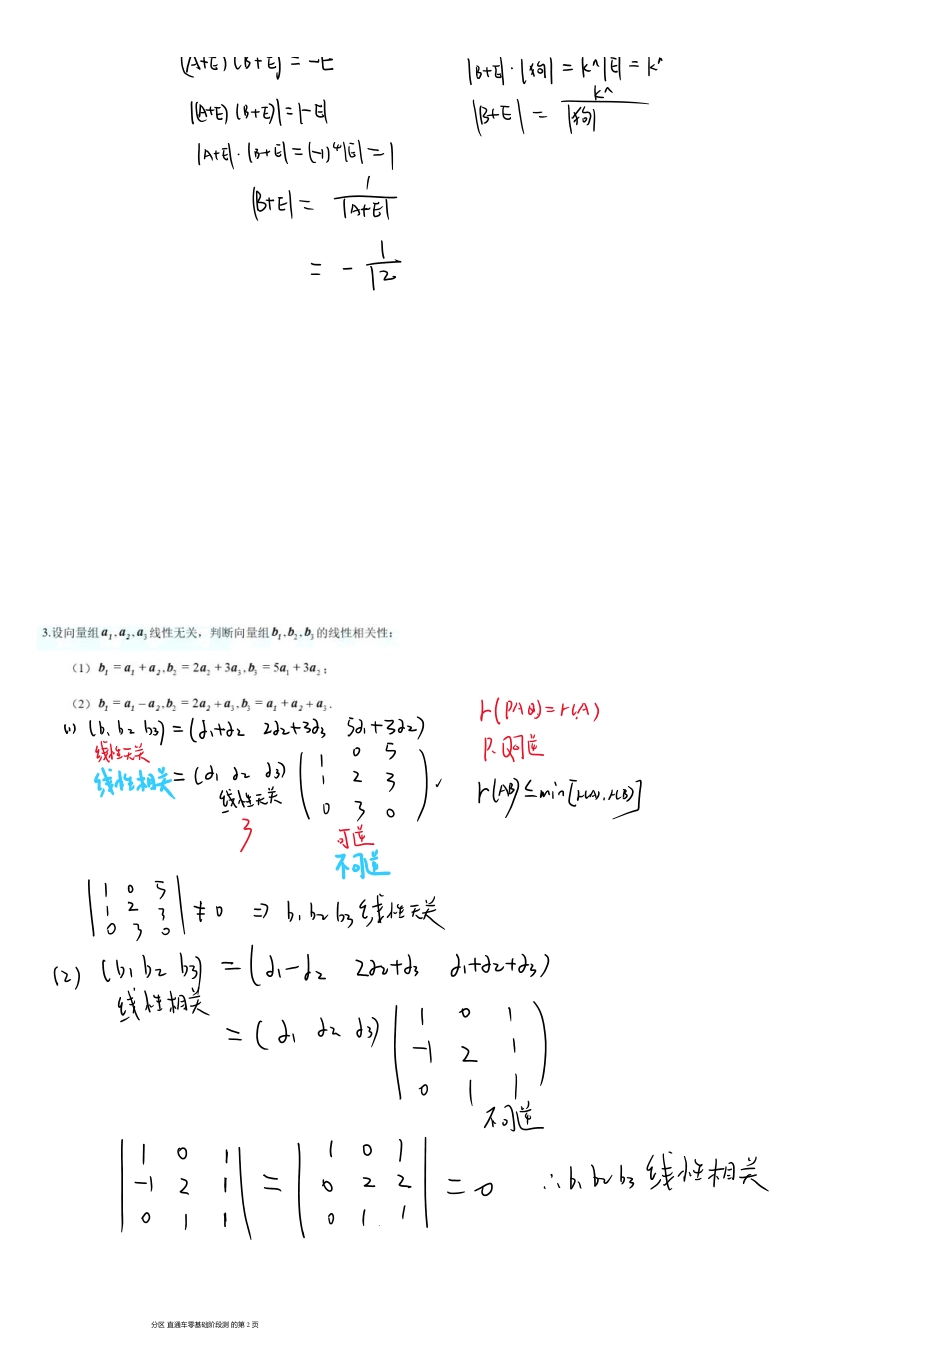 (A+E)(B+E) = -E
|(A+E)(B+E)| = |-E|
|A+E|·|B+E| = (-1)⁴|E| = 1
|B+E| = 1/|A+E|
= -1/12
|B+E|·|狗| = kⁿ|E| = kⁿ
|B+E| = kⁿ/|狗|
3.设向量组a₁,a₂,a₃线性无关，判断向量组b₁,b₂,b₃的线性相关性：
（1）b₁=a₁+a₂,b₂=2a₂+3a₃,b₃=5a₁+3a₂；
（2）b₁=a₁-a₂,b₂=2a₂+a₃,b₃=a₁+a₂+a₃.
(1) (b₁ b₂ b₃) = (α₁+α₂ 2α₂+3α₃ 5α₁+3α₂)
线性无关
线性相关
= (α₁ α₂ α₃)
1 0 5
1 2 3
0 3 0
线性无关
3
可逆
不可逆
r(PAQ)=r(A)
P、Q可逆
r(AB)≤min[r(A),r(B)]
|1 0 5|
|1 2 3| ≠ 0 ⇒ b₁ b₂ b₃线性无关
|0 3 0|
(2) (b₁ b₂ b₃) = (α₁-α₂ 2α₂+α₃ α₁+α₂+α₃)
线性相关
= (α₁ α₂ α₃)
1 0 1
-1 2 1
0 1 1
不可逆
|1 0 1| |1 0 1|
|-1 2 1| = |0 2 2| = 0 ∴b₁ b₂ b₃线性相关
|0 1 1| |0 1 1|
分区 直通车零基础阶段测 的第 2 页